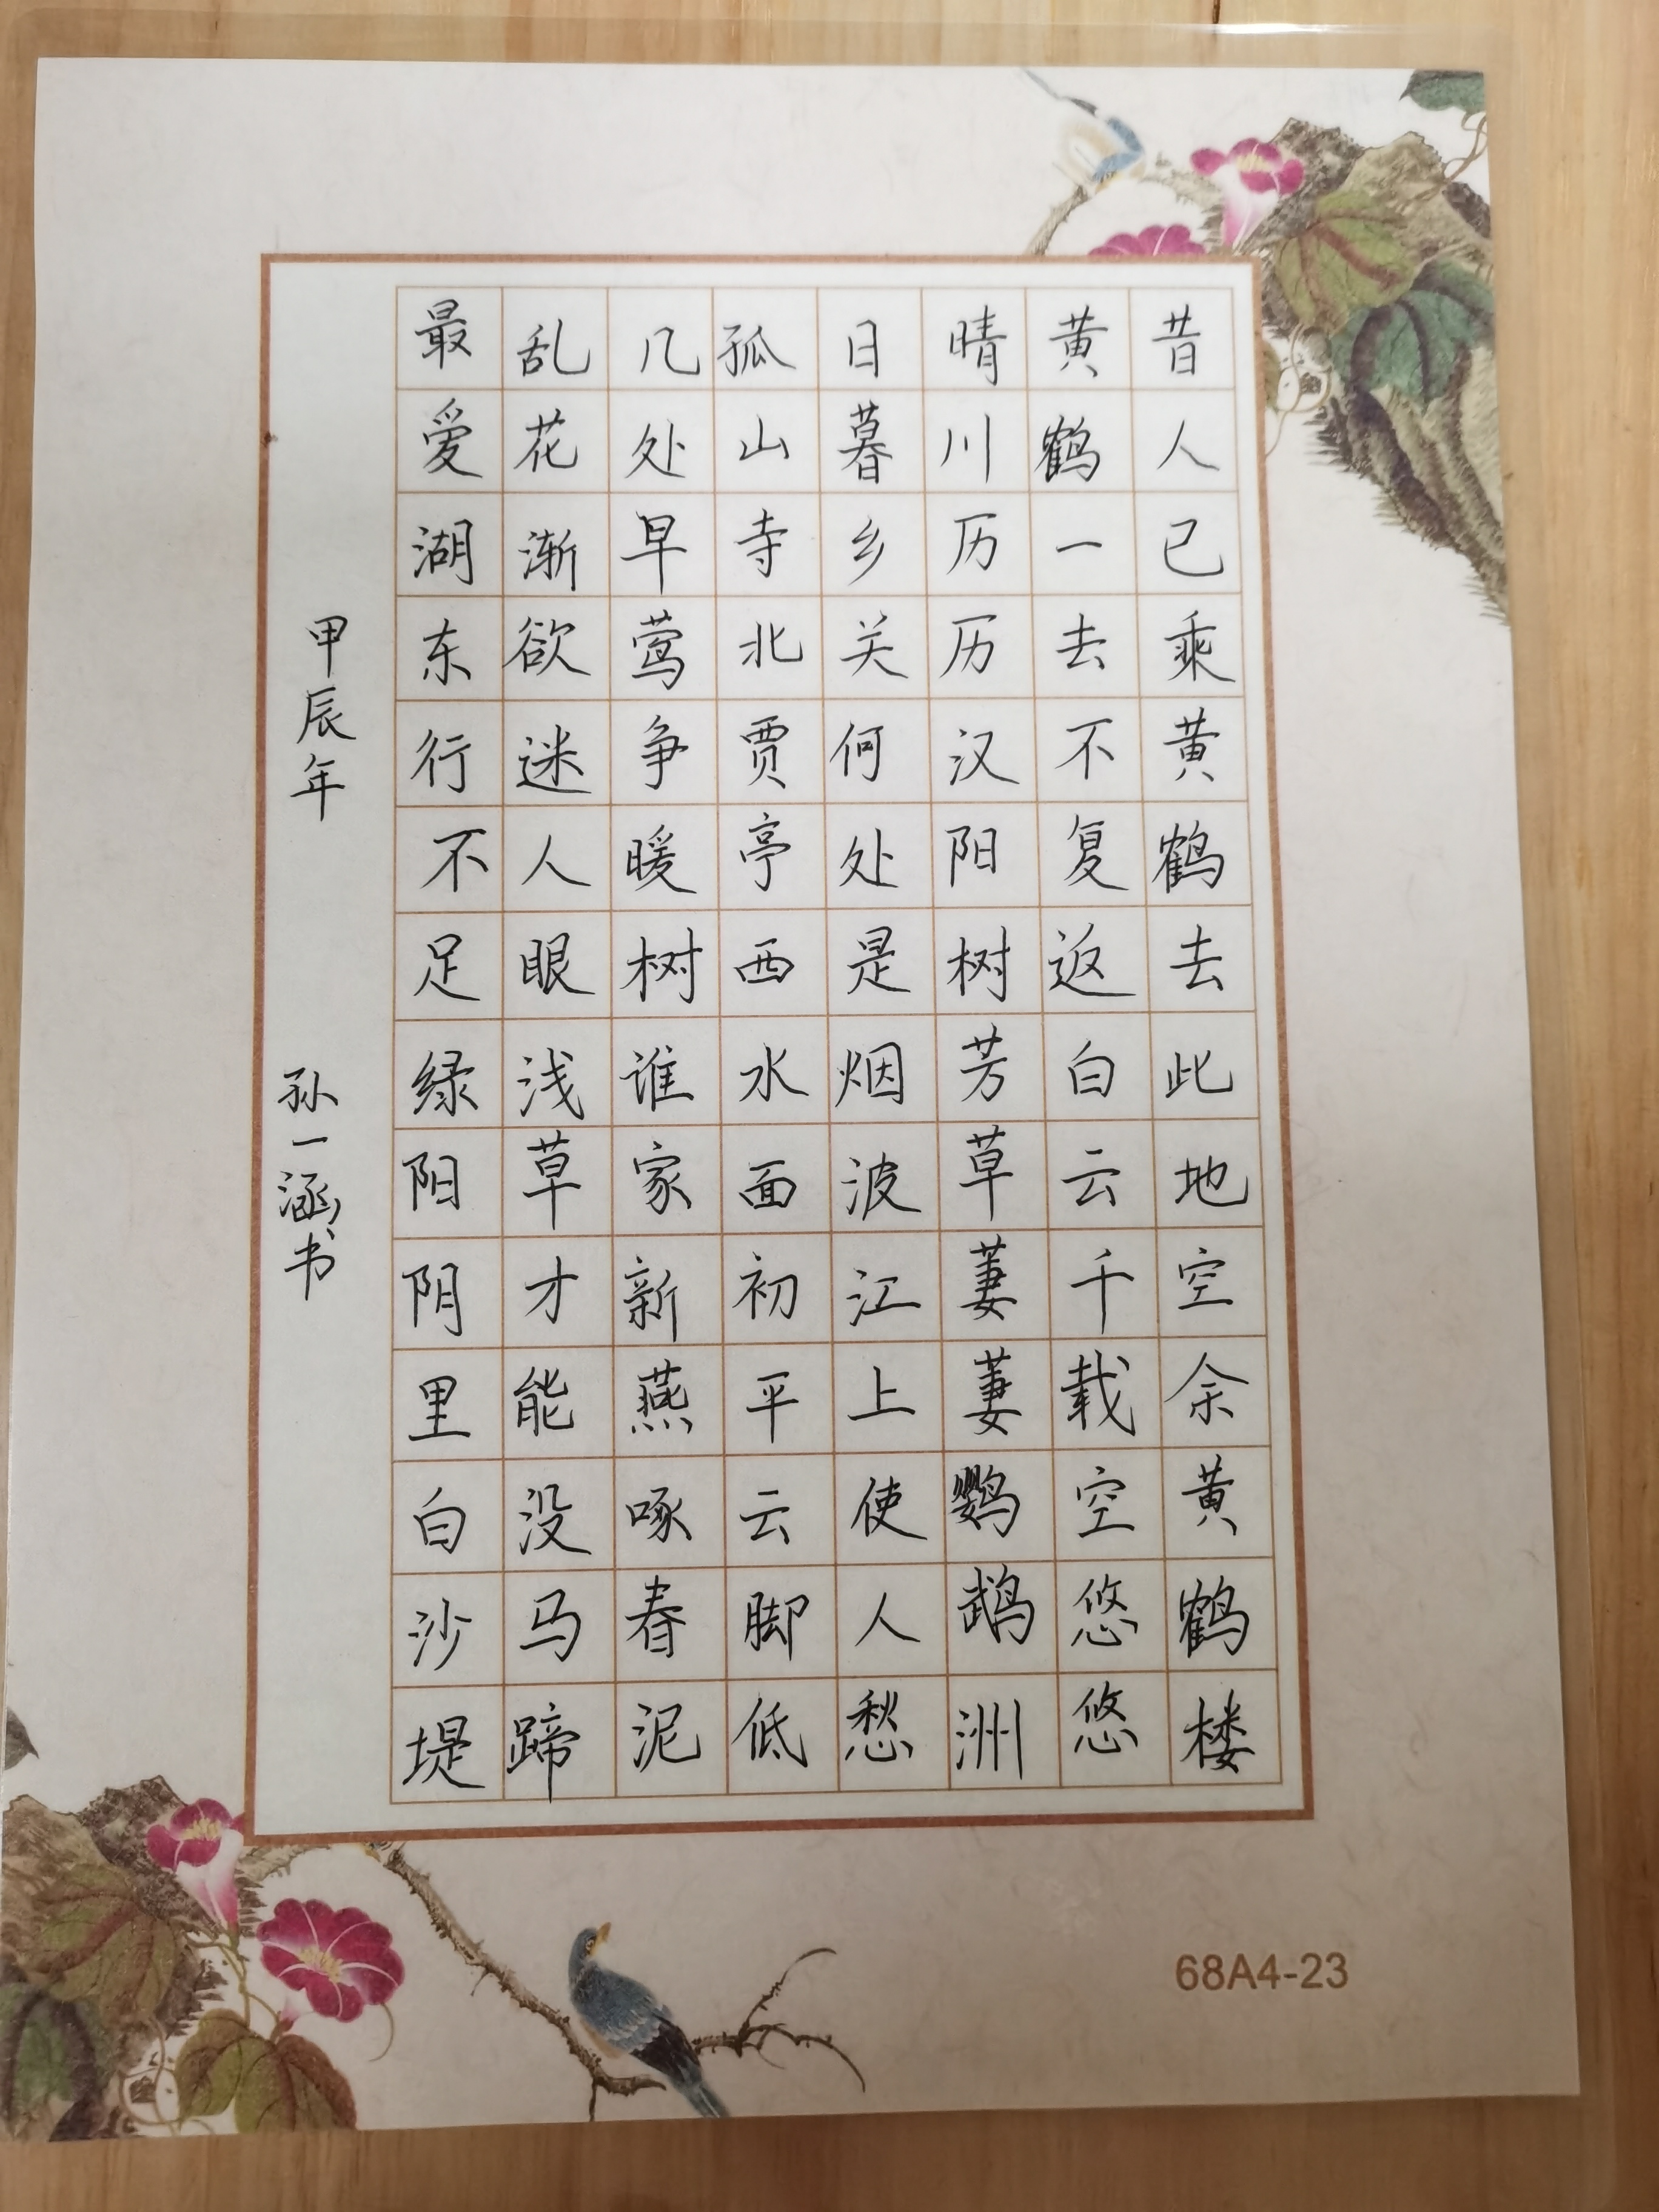 昔人已乘黄鹤去此地空余黄鹤楼
黄鹤一去不复返白云千载空悠悠
晴川历历汉阳树芳草萋萋鹦鹉洲
日暮乡关何处是烟波江上使人愁
孤山寺北贾亭西水面初平云脚低
几处早莺争暖树谁家新燕啄春泥
乱花渐欲迷人眼浅草才能没马蹄
最爱湖东行不足绿阳阴里白沙堤
甲辰年 孙一涵书
68A4-23